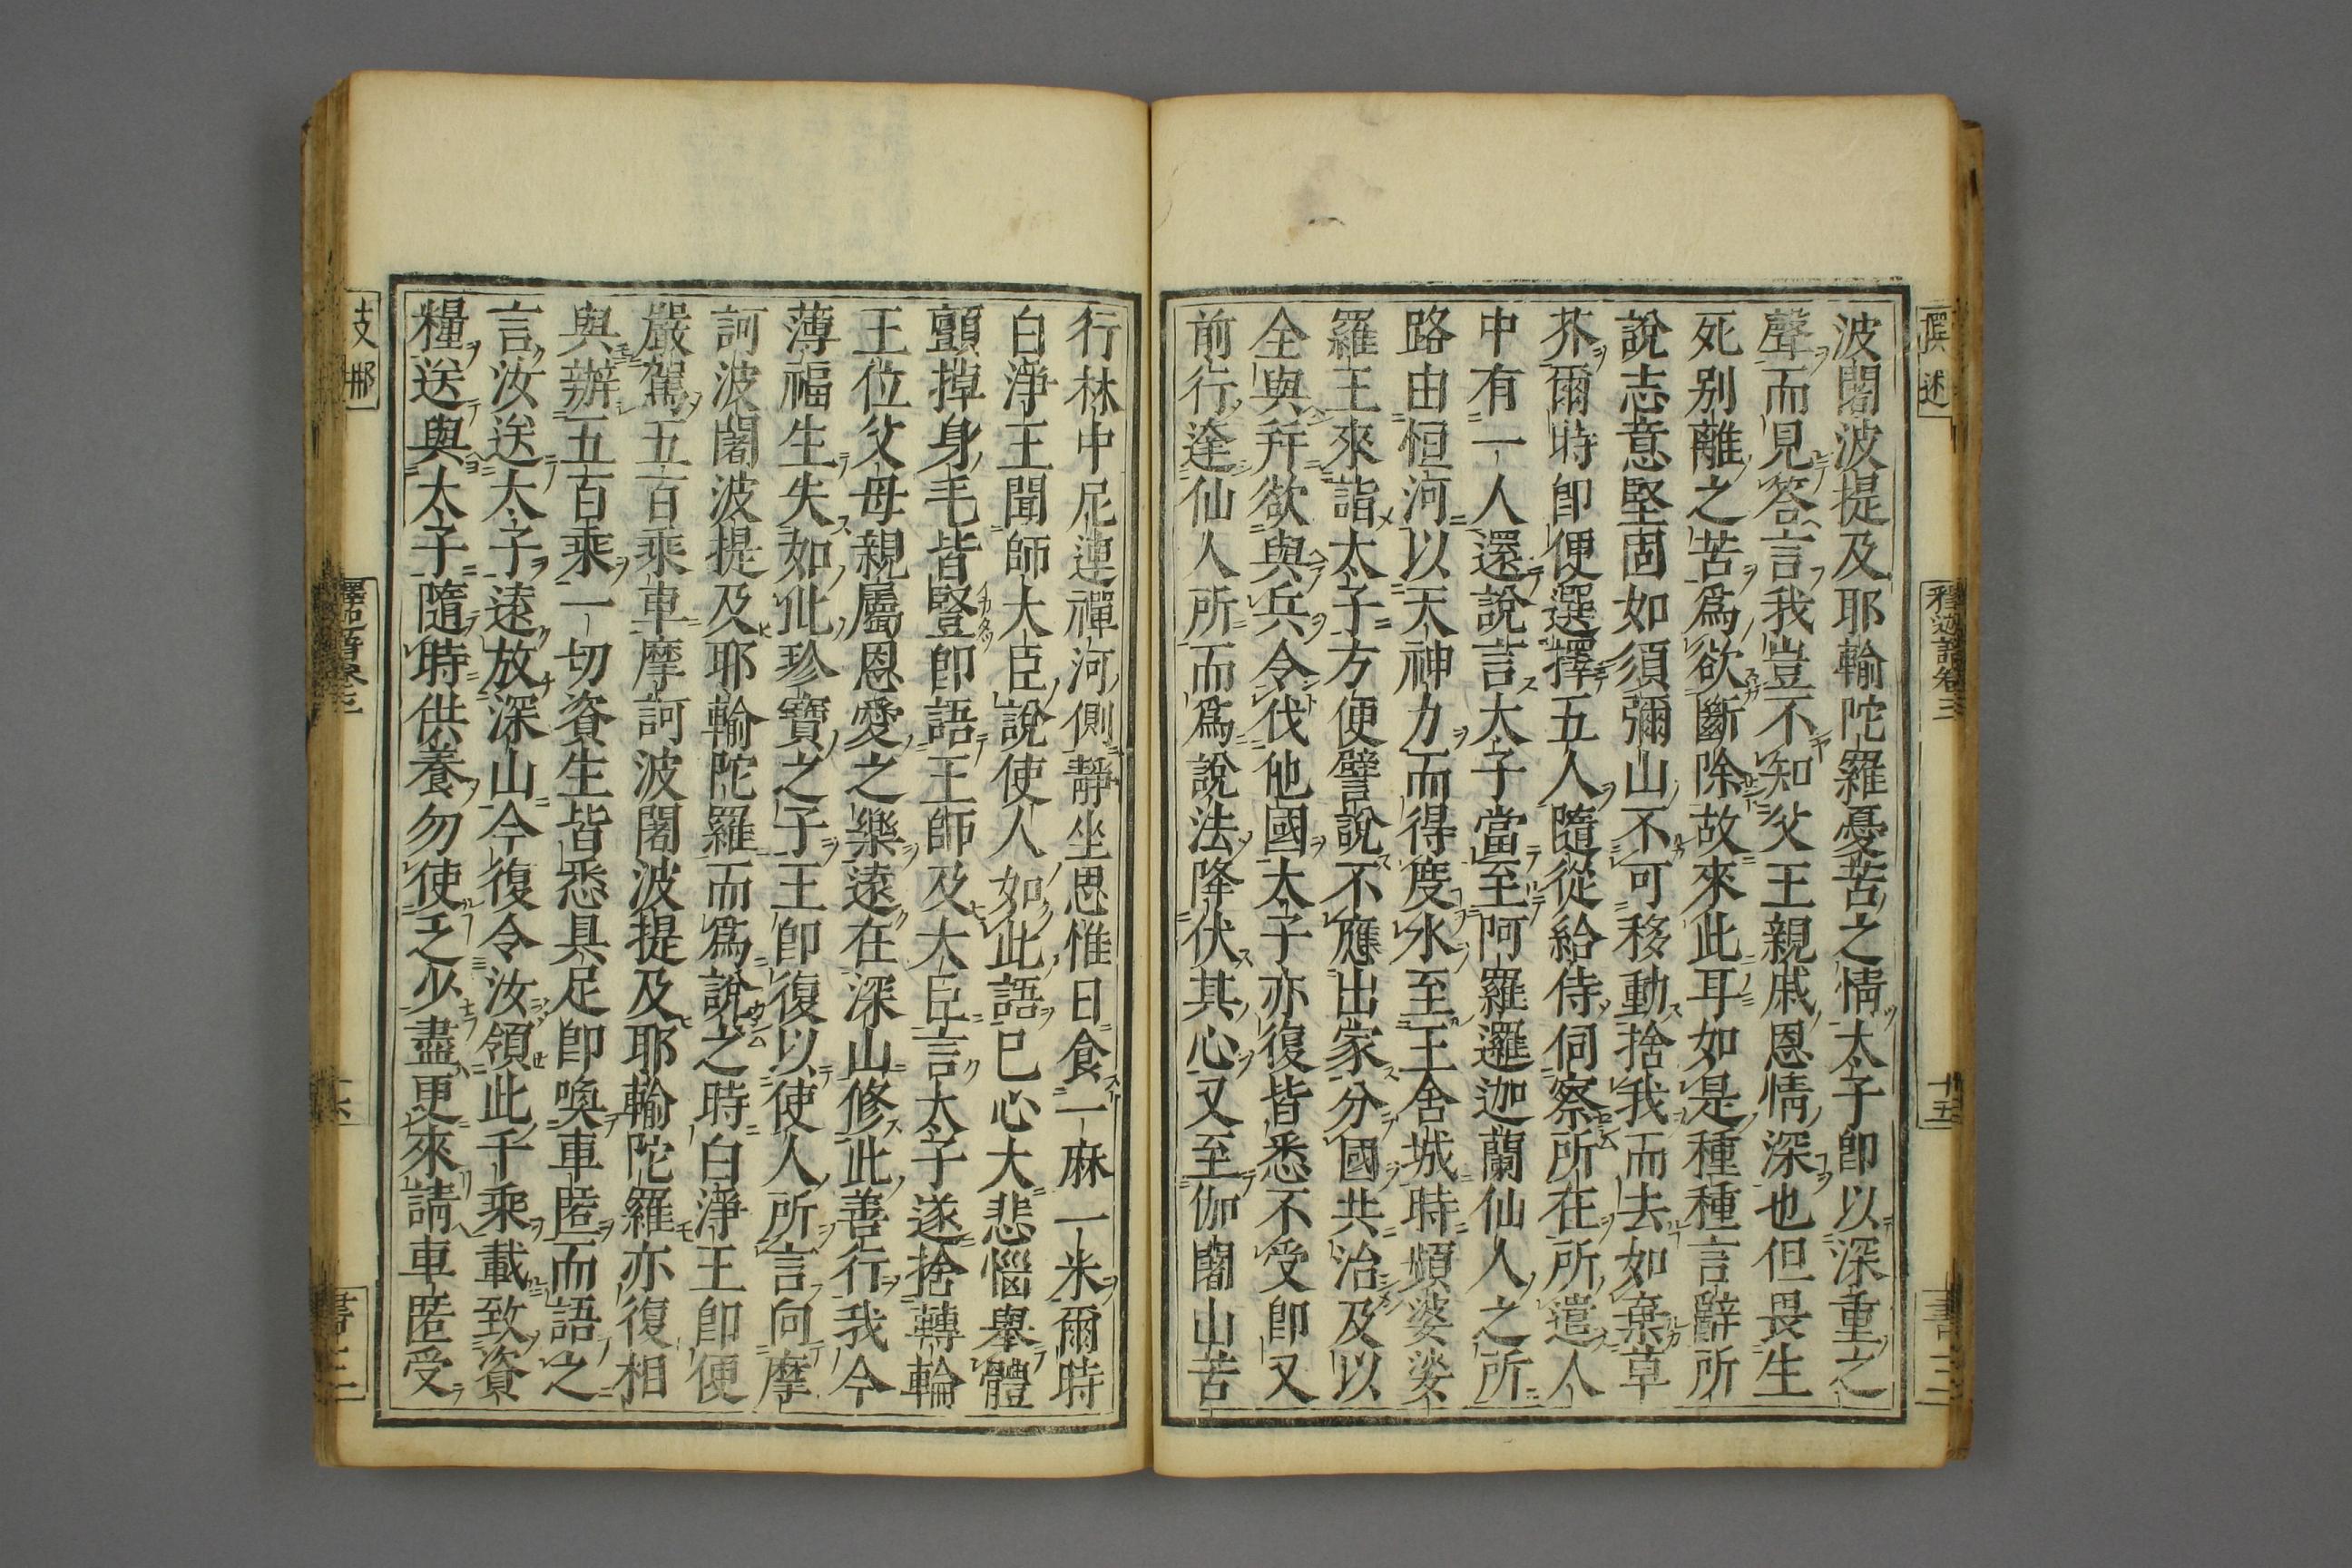 撰述
釋迦譜卷三
十五
書三
波闍波提及耶輸陀羅憂苦之情太子卽以深重之
聲而見答言我豈不知父王親戚恩情深也但畏生
死别離之苦爲欲斷除故來此耳如是種種言辭所
說志意堅固如須彌山不可移動捨我而去如棄草
芥爾時卽便選擇五人隨從給侍伺察所在所遣人
中有一人還說言太子當至阿羅邏迦蘭仙人之所
路由恒河以天神力而得度水至王舍城時頻婆娑
羅王來詣太子方便譬說不應出家分國共治及以
全與并欲與兵令伐他國太子亦復皆悉不受卽又
前行逹仙人所而爲說法降伏其心又至伽闍山苦
行林中尼連禪河側靜坐思惟日食一麻一米爾時
白淨王聞師大臣說使人如此語已心大悲惱舉體
顫掉身毛皆豎卽語王師及大臣言太子遂捨轉輪
王位父母親屬恩愛之樂遠在深山修此善行我今
薄福生失如此珍寶之子王卽復以使人所言向摩
訶波闍波提及耶輸陀羅而爲說之時白淨王卽便
嚴駕五百乘車摩訶波闍波提及耶輸陀羅亦復相
與辦五百乘一切資生皆悉具足卽喚車匿而語之
言汝送太子遠放深山今復令汝領此千乘載致資
糧送與太子隨時供養勿使乏少盡更來請車匿受
支那
書三